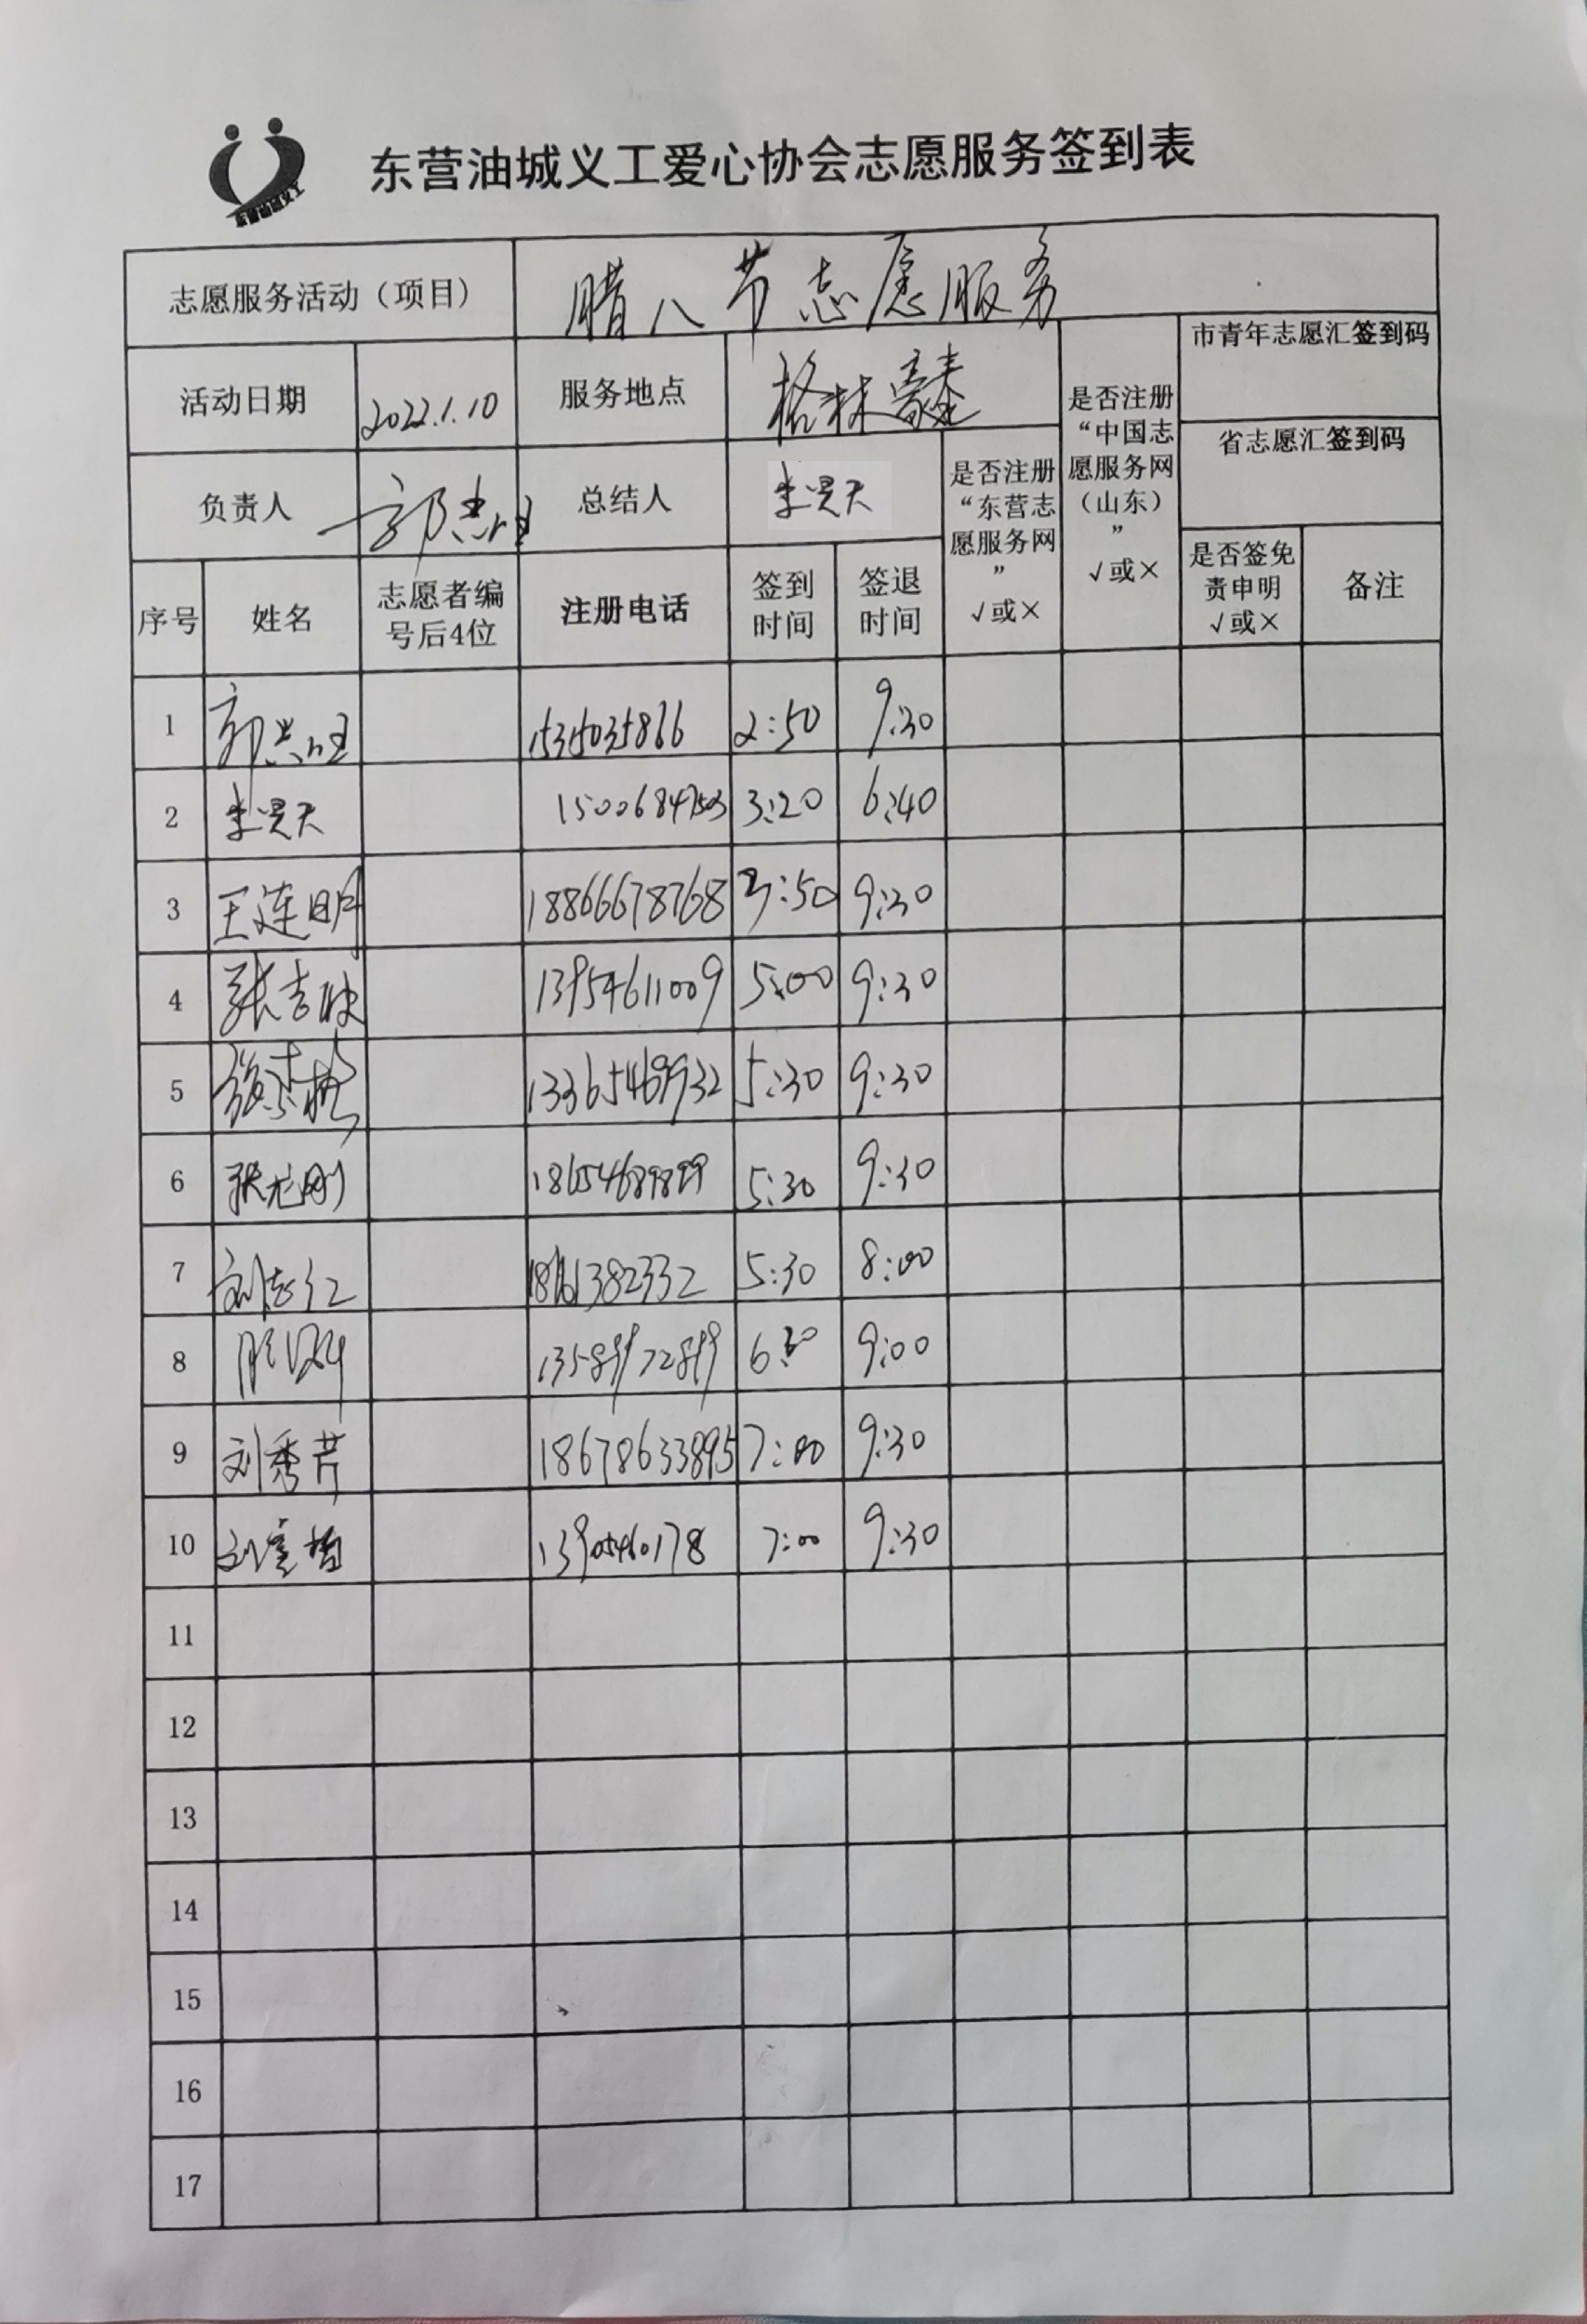 东营油城义工
东营油城义工爱心协会志愿服务签到表
志愿服务活动（项目） 腊八节志愿服务
活动日期 2022.1.10 服务地点 格林豪泰
是否注册“中国志愿服务网（山东）” √或×
市青年志愿汇签到码
省志愿汇签到码
负责人 总结人 李昊天
是否注册“东营志愿服务网” √或×
序号 姓名 志愿者编号后4位 注册电话 签到时间 签退时间 是否签免责申明 √或× 备注
1 2:50 9:30
2 李昊天 3:20 6:40
3 王连明 18866678768 3:50 9:30
4 13954611009 5:00 9:30
5 13365469932 5:30 9:30
6 5:30 9:30
7 刘志仁 5:30 8:00
8 9:00
9 刘秀芹 18678633895 7:00 9:30
10 13905460178 7:00 9:30
11
12
13
14
15
16
17